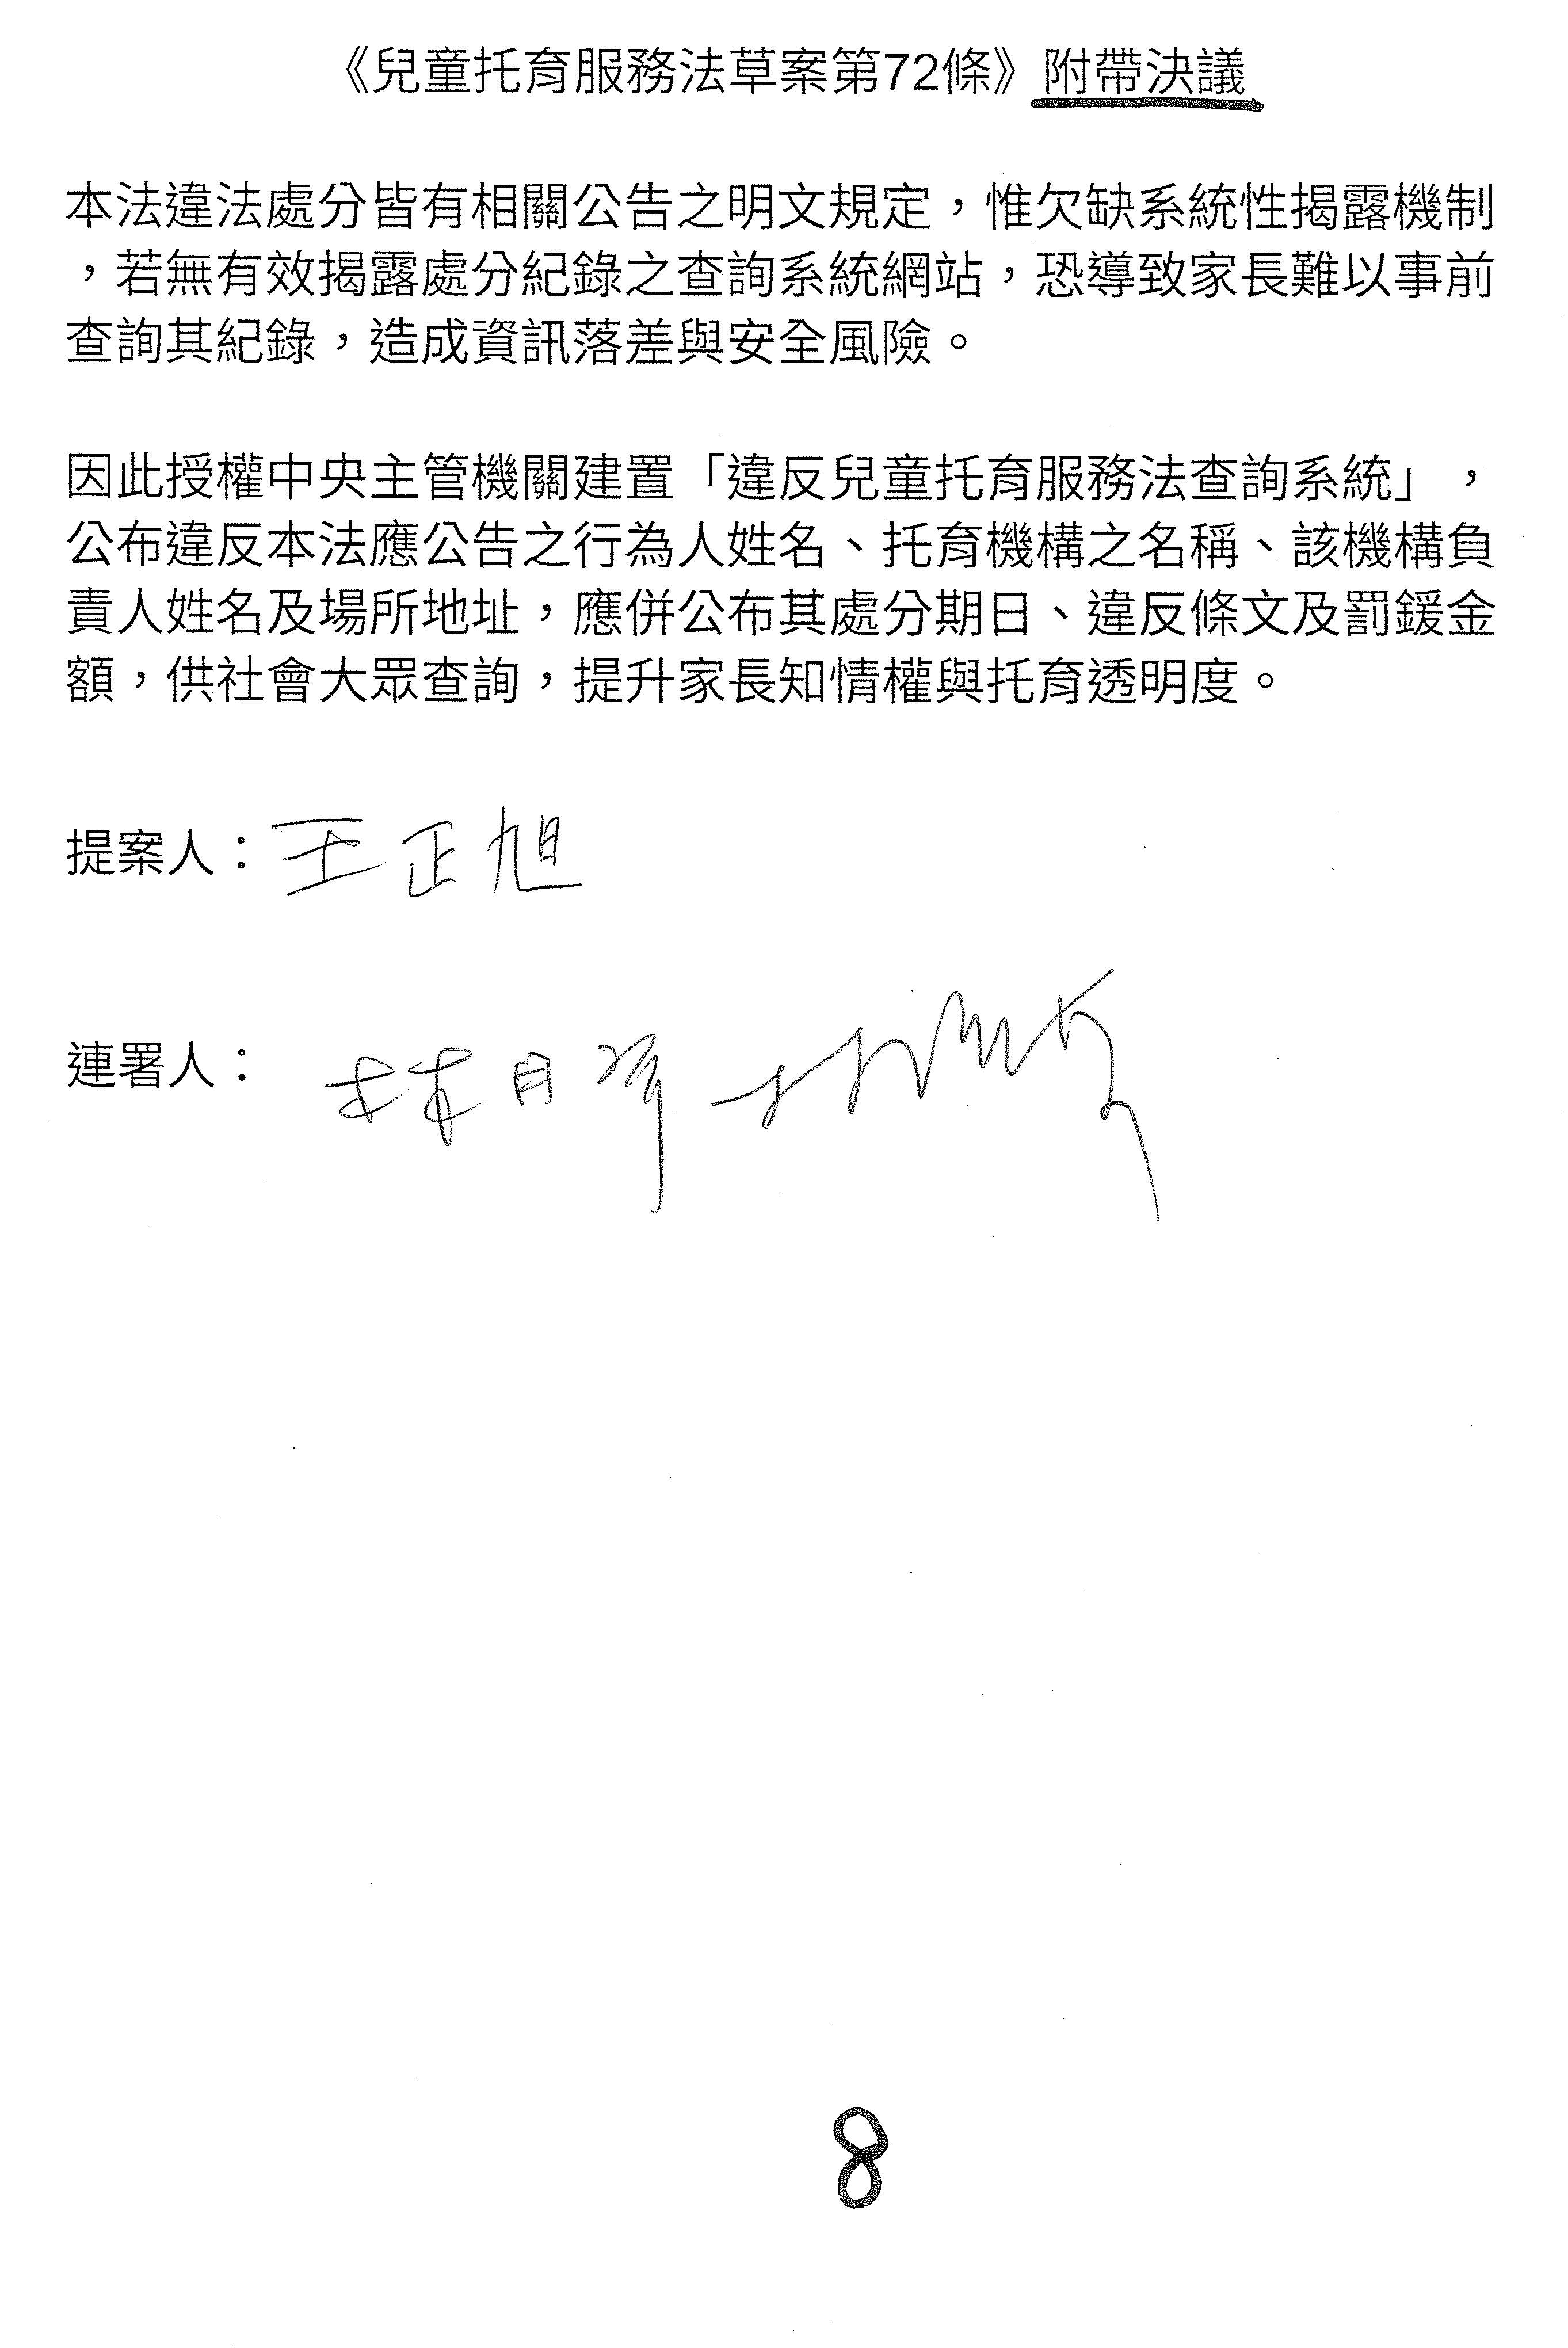 《兒童托育服務法草案第72條》附帶決議
本法違法處分皆有相關公告之明文規定，惟欠缺系統性揭露機制
，若無有效揭露處分紀錄之查詢系統網站，恐導致家長難以事前
查詢其紀錄，造成資訊落差與安全風險。
因此授權中央主管機關建置「違反兒童托育服務法查詢系統」，
公布違反本法應公告之行為人姓名、托育機構之名稱、該機構負
責人姓名及場所地址，應併公布其處分期日、違反條文及罰鍰金
額，供社會大眾查詢，提升家長知情權與托育透明度。
提案人：王正旭
連署人：林月琴
8